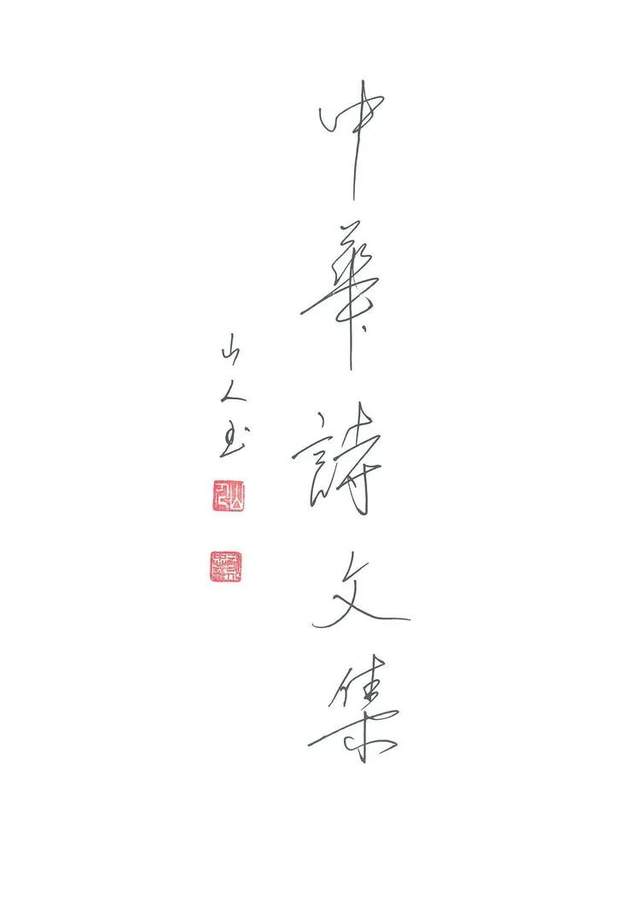 中華詩文集
山人书